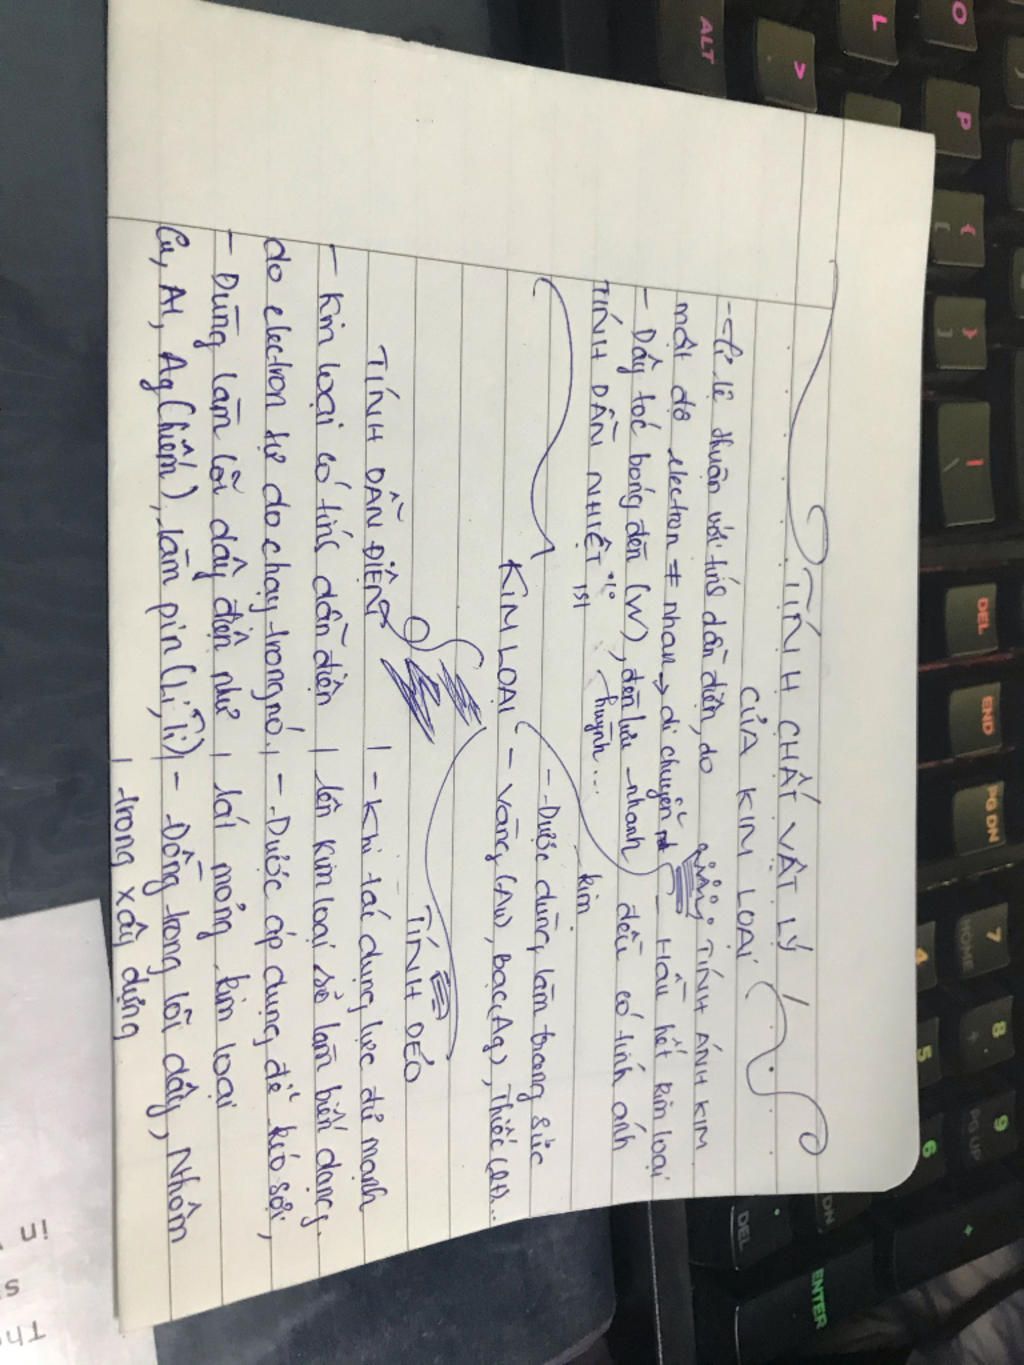 TÍNH CHẤT VẬT LÝ
CỦA KIM LOẠI
- Tỉ lệ thuận với tính dẫn điện, do
mật độ electron ≠ nhau → di chuyển
- Dây tóc bóng đèn (W), đèn lưu nhanh
huỳnh...
TÍNH DẪN NHIỆT
TÍNH ÁNH KIM
- Hầu hết kim loại
đều có tính ánh
kim
- Được dùng làm trang sức
KIM LOẠI - Vàng (Au), bạc (Ag), Thiếc (St)...
TÍNH DẺO
TÍNH DẪN ĐIỆN
- Kim loại có tính dẫn điện
do electron tự do chạy trong nó.
- Dùng làm lõi dây điện như
Cu, Al, Ag (hiếm), làm pin (Li, Ti)
- Khi tác dụng lực đủ mạnh
lên kim loại sẽ làm biến dạng.
- Được áp dụng để kéo sợi,
lát mỏng kim loại
- Đồng trong lõi dây, Nhôm
trong xây dựng
ALT
>
L
O
P
{
[
}
]
|
\
DEL
END
PG DN
7
HOME
8
9
PG UP
4
5
6
DEL
ENTER
+
in